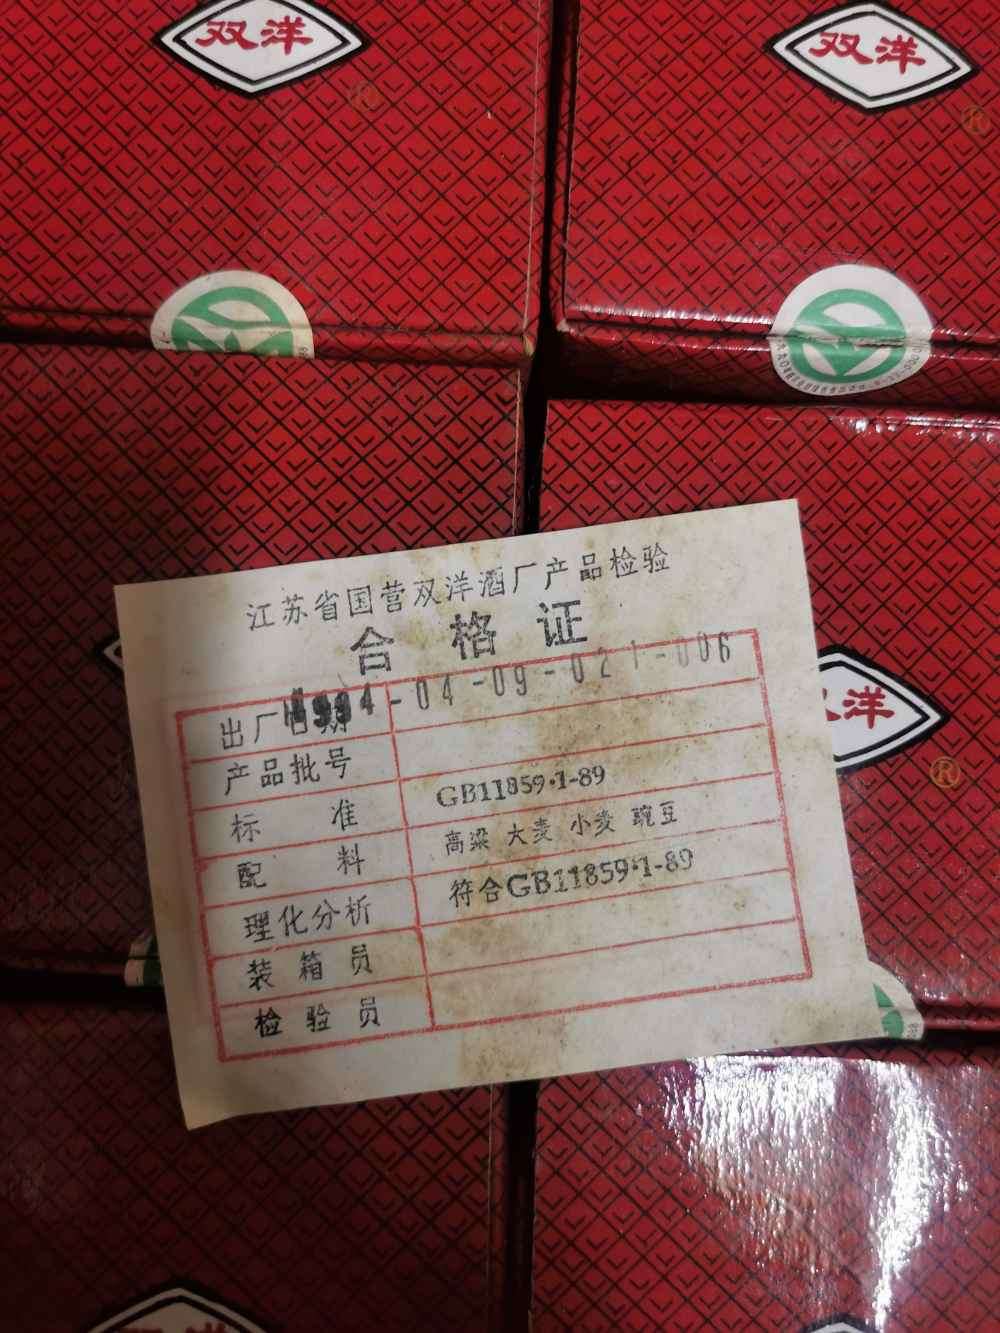 双洋
双洋
®
®
江苏省国营双洋酒厂产品检验
合格证
1994-04-09-021-006
出厂日期
产品批号
标准 GB11859·1-89
配料 高粱 大麦 小麦 豌豆
理化分析 符合GB11859·1-89
装箱员
检验员
洋
®